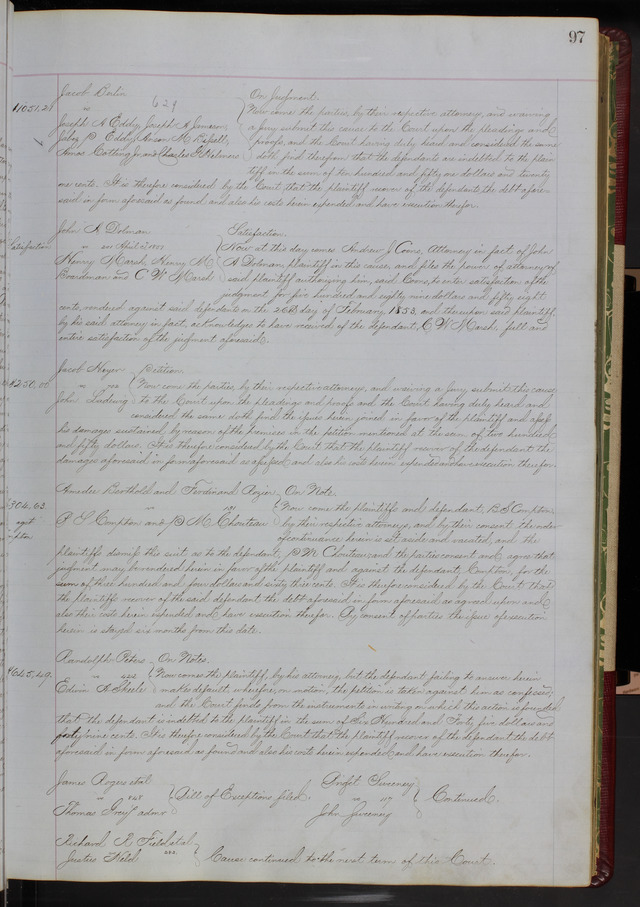 97
Jacob Bertin
On Judgment.
1051.21
629
Now come the parties, by their respective attorneys, and waiving
Joseph A Eddy, Joseph A Jameson,
a Jury submit this cause to the Court upon the pleadings and
Eddy, Anson M
proofs, and the Court having duly heard and considered the same
Amos Cotting Jr and Charles
doth find therefrom that the defendants are indebted to the plain
tiff in the sum of ten hundred and fifty one dollars and twenty
one cents. It is therefore considered by the Court that the plaintiff recover of the defendants the debt afore
said in form aforesaid as found, and also his costs herein expended and have execution therefor.
John A Dolman
Satisfaction.
Satisfaction
vs April 1857
Now at this day comes Andrew J Coons, Attorney in fact of John
Henry Marsh, Henry M
A Dolman, plaintiff in this cause, and files the power of attorney of
Boardman and C W Marsh
said plaintiff authorizing him, said Coons, to enter satisfaction of the
judgment for five hundred and eighty nine dollars and fifty eight
cents, rendered against said defendants on the 26th day of February 1853, and thereupon said plaintiff,
by his said attorney in fact, acknowledges to have received of the defendant, C W Marsh, full and
entire satisfaction of the judgment aforesaid.
Jacob Heyer
Petition.
$250.00
Now come the parties, by their respective attorneys, and waiving a Jury submit this cause
John Ludwig
to the Court upon the pleadings and proofs and the Court having duly heard and
considered the same doth find the issues herein joined in favor of the plaintiff and assess
his damages sustained by reason of the premises in the petition mentioned at the sum of two hundred
and fifty dollars. It is therefore considered by the Court that the plaintiff recover of the defendant the
damages aforesaid in form aforesaid as assessed and also his costs herein expended and have execution therefor.
Amedee Berthold and Ferdinand Rozier
On Note.
304.63
Now come the plaintiffs and defendant, P S Compton,
P S Compton and P M Chouteau
by their respective attorneys, and by their consent the order
agst
of continuance herein is set aside and vacated, and the
plaintiffs dismiss this suit as to the defendant, P M Chouteau; and the parties consent and agree that
judgment may be rendered herein in favor of the plaintiff and against the defendant, Compton, for the
sum of three hundred and four dollars and sixty three cents. It is therefore considered by the Court that
the plaintiffs recover of the said defendant the debt aforesaid in form aforesaid as agreed upon and
also their costs herein expended and have execution therefor. By consent of parties the issue of execution
herein is stayed six months from this date.
Randolph Peters
On Notes.
$645.49.
Now comes the plaintiff, by his attorney, but the defendant failing to answer herein
Edwin A
makes default, wherefore, on motion, the petition is taken against him as confessed;
and the Court finds from the instruments in writing on which this action is founded
that the defendant is indebted to the plaintiff in the sum of Six Hundred and Forty five dollars and
forty nine cents. It is therefore considered by the Court that the plaintiff recover of the defendant the debt
aforesaid in form aforesaid as found and also his costs herein expended and have execution therefor.
James Rogers et al
vs 748
Bill of Exceptions filed.
Thomas Gray's admr
Sweeney
vs 117
Continued.
John Sweeney
Richard R Field et al
Justus Field
Cause continued to the next term of this Court.